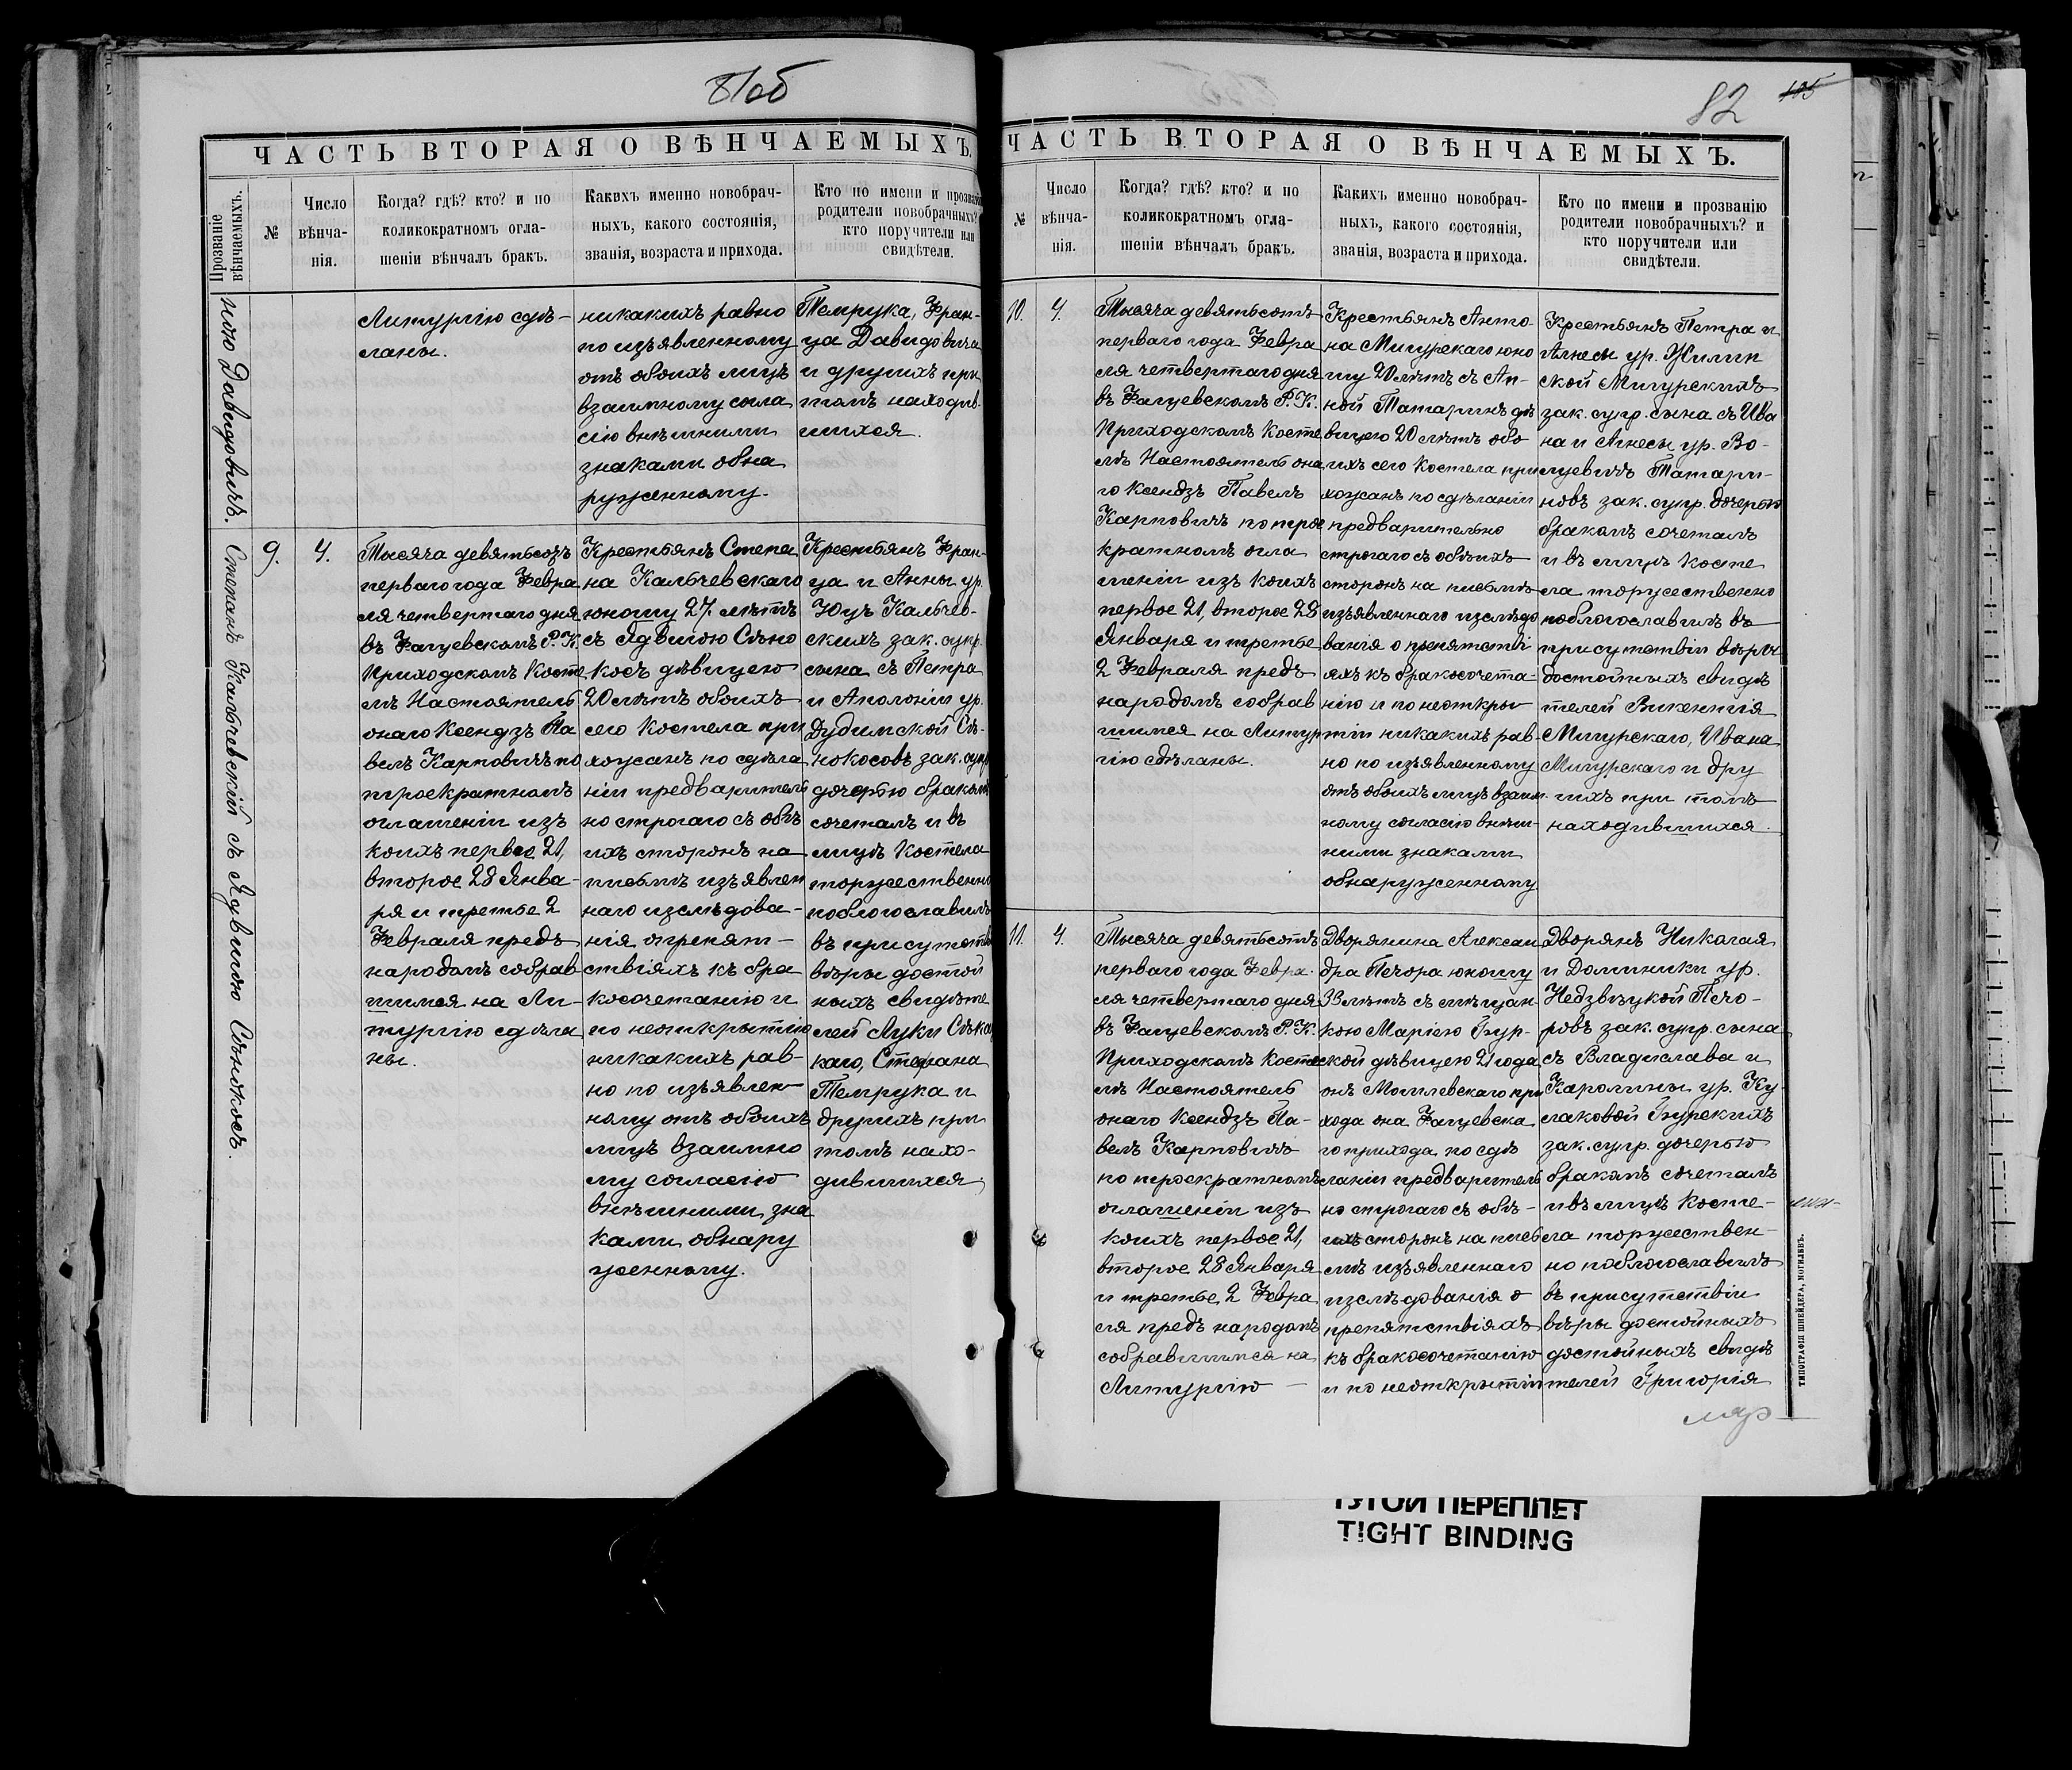 81об
ЧАСТЬ ВТОРАЯ О ВѢНЧАЕМЫХЪ.
Прозваніе
вѣнчаемыхъ.
№
Число
вѣнча-
нія.
Когда? гдѣ? кто? и по
коликократномъ огла-
шеніи вѣнчалъ бракъ.
Какихъ именно новобрач-
ныхъ, какого состоянія,
званія, возраста и прихода.
Кто по имени и прозванію
родители новобрачныхъ? и
кто поручители или
свидѣтели.
ною Давидовичъ.
Литургію сдѣ-
ланы.
никакихъ равно
по изъявленному
отъ обоихъ лицъ
взаимному согла
сію внѣшними
знаками обна
руженному.
Темрука, Фран-
ца Давидовича
и другихъ при
томъ находив-
шихся.
Степанъ Кальчевскій съ Ядвигою Сѣнокосъ.
9.
4.
Тысяча девятьсотъ
перваго года Февра
ля четвертаго дня
въ Фащевскомъ Р. К.
Приходскомъ Косте
лѣ Настоятель
онаго Ксендзъ Па
велъ Карповичъ по
троекратномъ
оглашеніи изъ
коихъ первое 21,
второе 28 Янва-
ря и третье 2
Февраля предъ
народомъ собрав
шимся на Ли-
тургію сдѣла
ны.
Крестьянъ Степа
на Кальчевскаго
юношу 27 лѣтъ
съ Ядвигою Сѣно
косъ дѣвицею
20 лѣтъ обоихъ
сего Костела при
хожанъ по сдѣла
ніи предваритель
но строгаго съ обѣ
ихъ сторонъ на
письмѣ изъявлен
наго изслѣдова-
нія о препят-
ствіяхъ къ бра
косочетанію и
по неоткрытію
никакихъ рав-
но по изъявлен
ному отъ обоихъ
лицъ взаимно
му согласію
внѣшними зна
ками обнару
женному.
Крестьянъ Фран-
ца и Анны ур.
Юцъ Кальчев-
скихъ зак. супр.
сына съ Петра
и Аполоніи ур.
Дудимской Сѣ-
нокосовъ зак. супр
дочерью бракомъ
сочеталъ и въ
лицѣ Костела
торжественно
поблогославилъ
въ присутствіи
вѣры достой
ныхъ свидѣте
лей Луки
Стефана
Темрука и
другихъ при
томъ нахо-
дившихся
82
105
ЧАСТЬ ВТОРАЯ О ВѢНЧАЕМЫХЪ.
№
Число
вѣнча-
нія.
Когда? гдѣ? кто? и по
коликократномъ огла-
шеніи вѣнчалъ бракъ.
Какихъ именно новобрач-
ныхъ, какого состоянія,
званія, возраста и прихода.
Кто по имени и прозванію
родители новобрачныхъ? и
кто поручители или
свидѣтели.
10.
4.
Тысяча девятьсотъ
перваго года Февра
ля четвертаго дня
въ Фащевскомъ Р. К.
Приходскомъ Косте
лѣ Настоятель она
го Ксендзъ Павелъ
Карповичъ по трое
кратномъ огла
шеніи изъ коихъ
первое 21, второе 28
Января и третье
2 Февраля предъ
народомъ собрав
шимся на Литур
гію сдѣланы.
Крестьянъ Анто-
на Мигурскаго юно
шу 20 лѣтъ съ Ан-
ной Татаринъ дѣ
вицею 20 лѣтъ обо
ихъ сего Костела при
хожанъ по сдѣланіи
предварительно
строгаго съ обѣихъ
сторонъ на письмѣ
изъявленнаго изслѣдо
ванія о препятстві
яхъ къ бракосочета-
нію и по неоткры
тіи никакихъ рав-
но по изъявленному
отъ обоихъ лицъ взаим
ному согласію внѣш-
ними знаками
обнаруженному
Крестьянъ Петра и
Агнесы ур. Жилин
ской Мигурскихъ
зак. супр. сына съ Ива
на и Агнесы ур. Во-
луевичъ Татари-
новъ зак. супр. дочерью
бракомъ сочеталъ
и въ лицѣ Косте
ла торжественно
поблогославилъ въ
присутствіи вѣры
достойныхъ свидѣ
телей Викентія
Мигурскаго, Ивана
Мигурскаго и дру
гихъ при томъ
находившихся.
11.
4.
Тысяча девятьсотъ
перваго года Февра-
ля четвертаго дня
въ Фащевскомъ Р. К.
Приходскомъ Косте
лѣ Настоятель
онаго Ксендзъ Па-
велъ Карповичъ
по троекратномъ
оглашеніи изъ
коихъ первое 21,
второе 28 Января
и третье 2 Февра
ля предъ народомъ
собравшимся на
Литургію —
Дворянина Алексан
дра Печора юношу
33 лѣтъ съ мѣщан-
кою Маріею Гур-
ской дѣвицею 21 года
онъ Могилевскаго при
хода она Фащевска
го прихода по сдѣ
ланіи предваритель
но строгаго съ обѣ-
ихъ сторонъ на пись
мѣ изъявленнаго
изслѣдованія о
препятствіяхъ
къ бракосочетанію
и по неоткрытіи
Дворянъ Николая
и Доминики ур.
Недзвѣцкой Печо-
ровъ зак. супр. сына
съ Владислава и
Каролины ур. Ку-
лаковой Гурскихъ
зак. супр. дочерью
бракомъ сочеталъ
и въ лицѣ Косте-
ла торжествен-
но поблогославилъ
въ присутствіи
вѣры достойныхъ
достойныхъ свидѣ
телей Григорія
ТИПОГРАФІЯ ШНЕЙДЕРА, МОГИЛЕВЪ.
ТУГОЙ ПЕРЕПЛЕТ
TIGHT BINDING